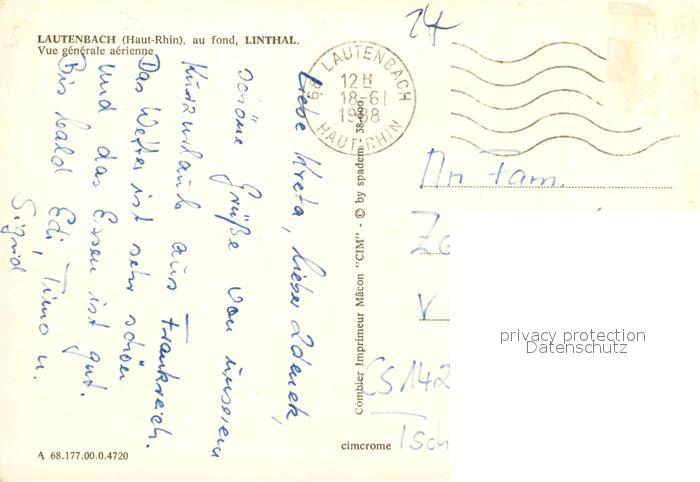 LAUTENBACH (Haut-Rhin), au fond, LINTHAL.
Vue générale aérienne
24
68 LAUTENBACH
12H
18-6
1988
HAUT-RHIN
Liebe Kreta, lieber Zdenek,
schöne Grüße von unserem
Kurzurlaub aus Frankreich.
Das Wetter ist sehr schön
und das Essen ist gut.
Bis bald Edi, Timo u.
Sigrid
Combier Imprimeur Mâcon "CIM" - © by spadem - 38-006
An Fam.
V
CS 142
Tsch
privacy protection
Datenschutz
A 68.177.00.0.4720
cimcrome